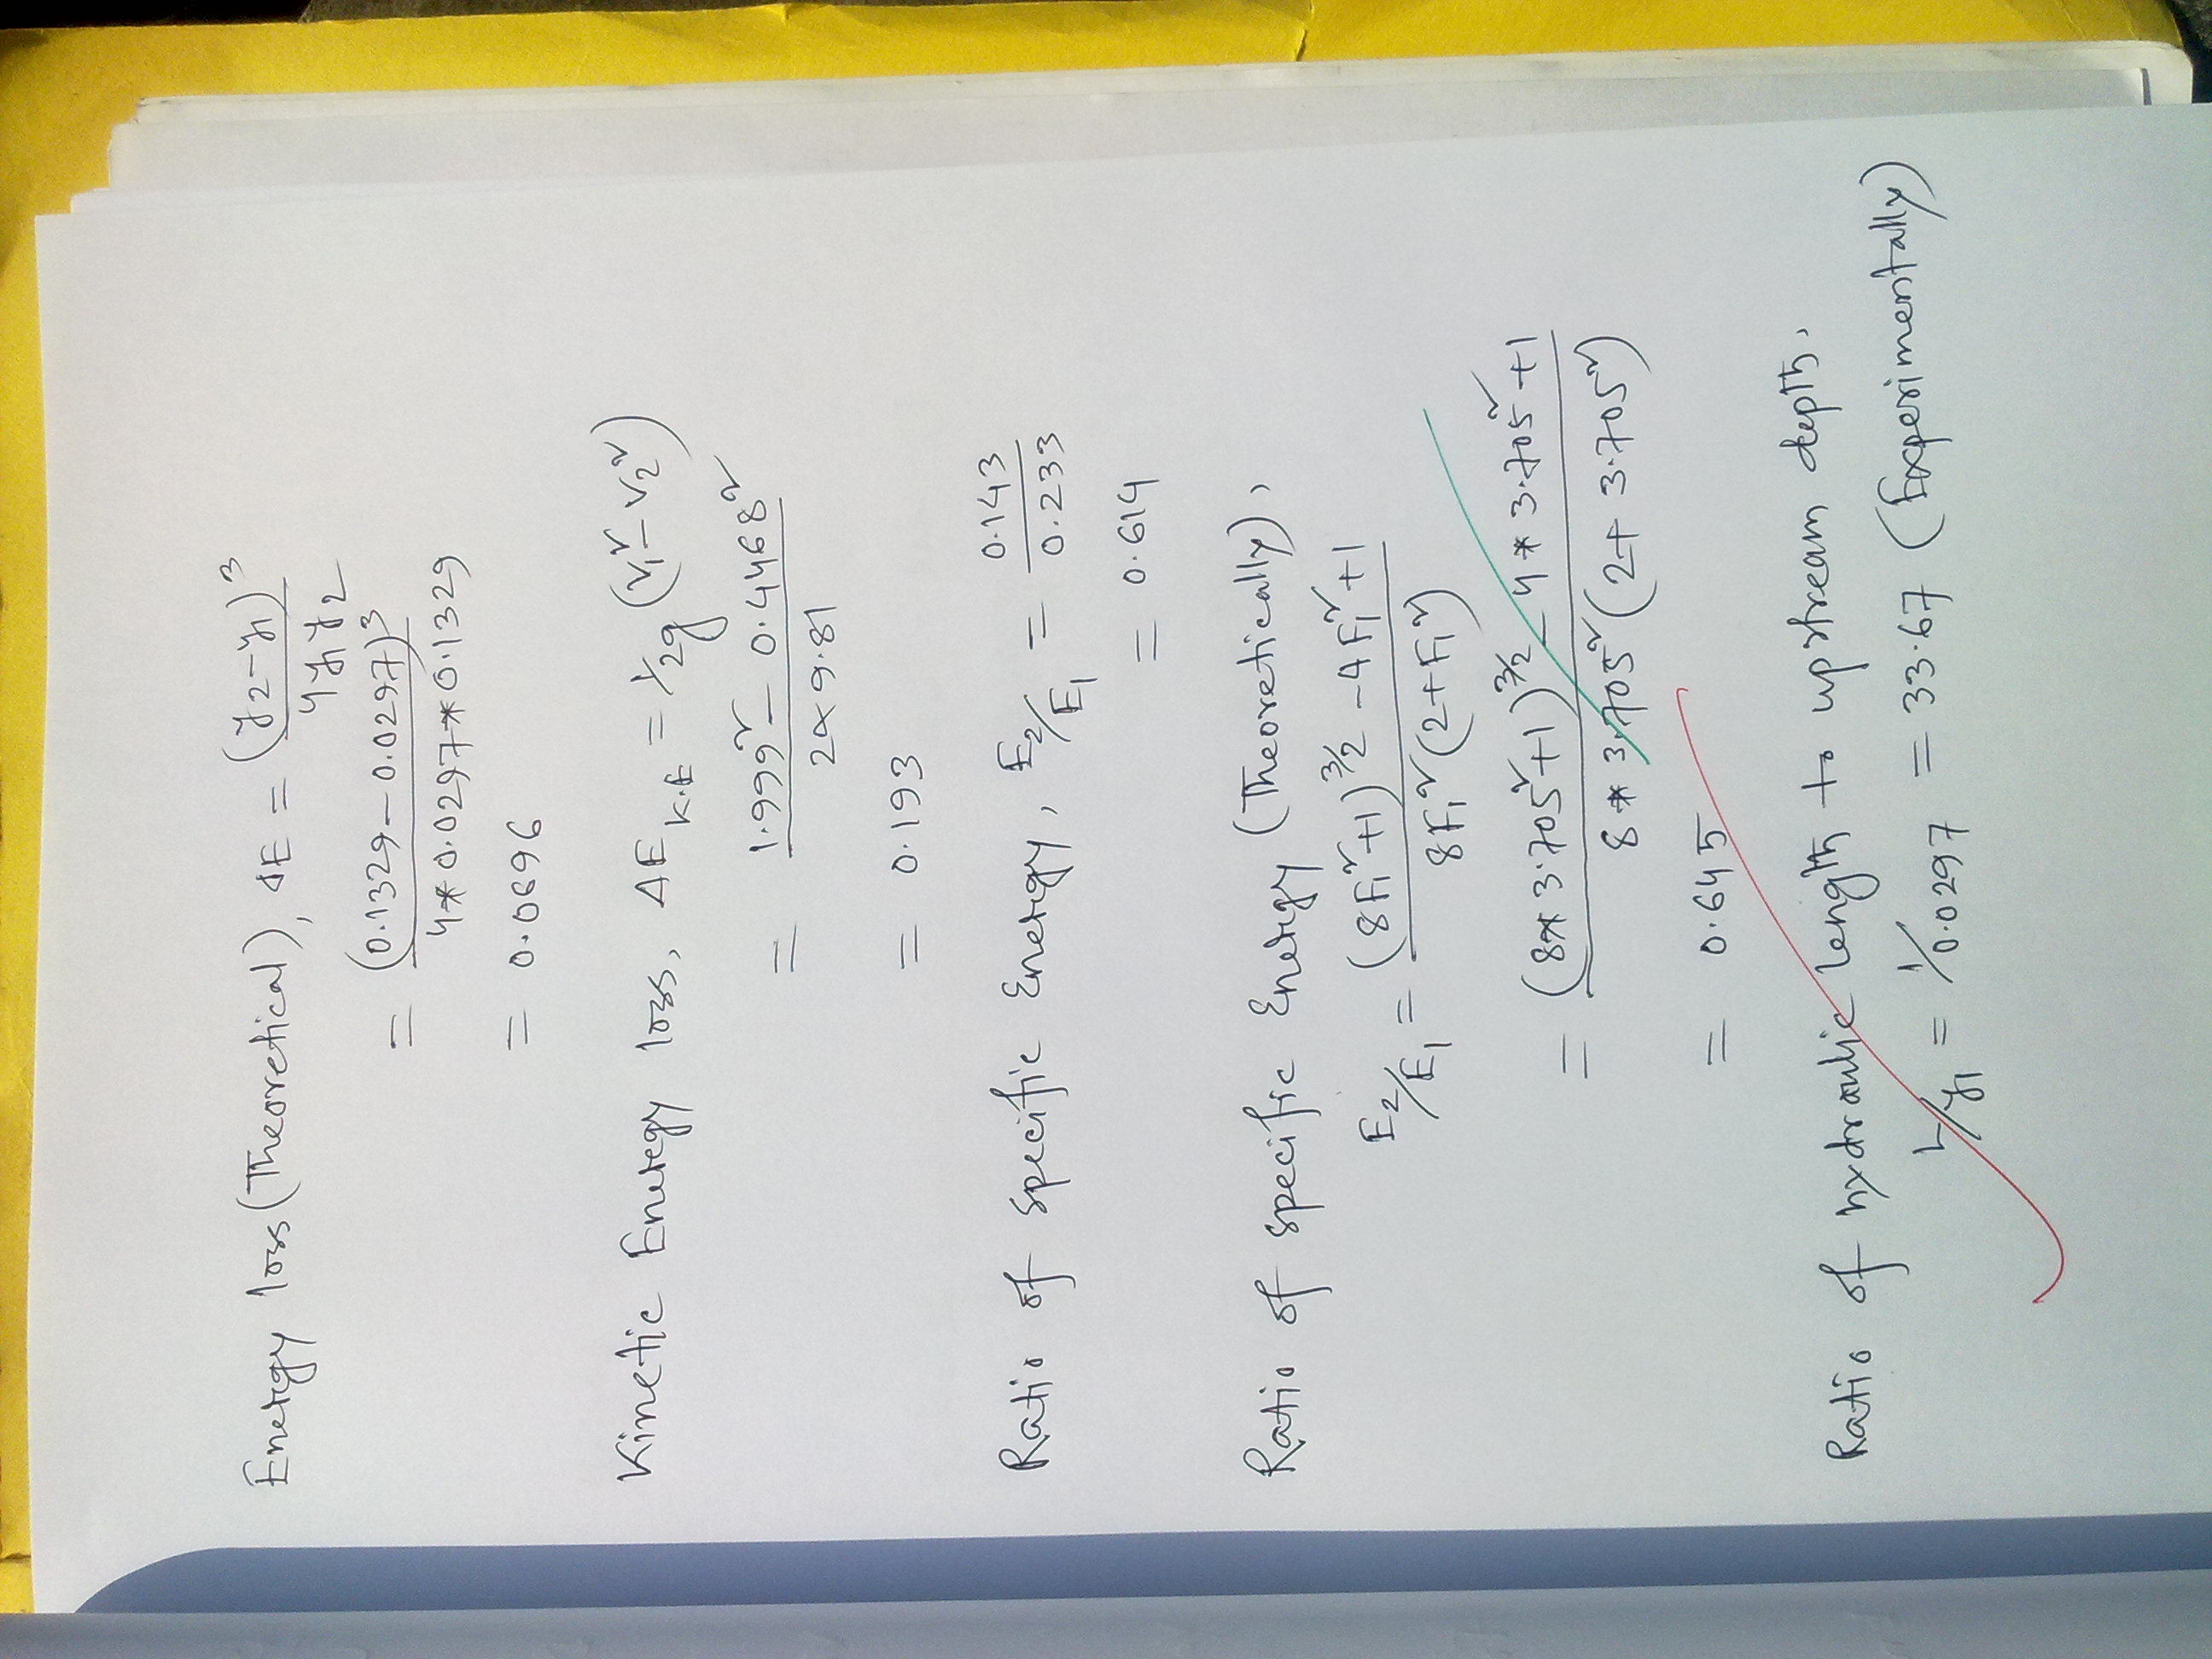 Energy loss (Theoretical), ΔE = (y₂-y₁)³ / 4y₁y₂
= (0.1329-0.0297)³ / 4*0.0297*0.1329
= 0.0696
Kinetic Energy loss, ΔE K.E = 1/2g (V₁² - V₂²)
= 1.999² - 0.4468² / 2×9.81
= 0.193
Ratio of Specific Energy, E₂/E₁ = 0.143 / 0.233
= 0.614
Ratio of Specific Energy (Theoretically),
E₂/E₁ = (8F₁²+1)^3/2 - 4F₁²+1 / 8F₁²(2+F₁²)
= (8*3.705²+1)^3/2 - 4*3.705²+1 / 8*3.705²(2+3.705²)
= 0.645
Ratio of hydraulic length to upstream depth,
L/y₁ = 1/0.0297 = 33.67 (Experimentally)